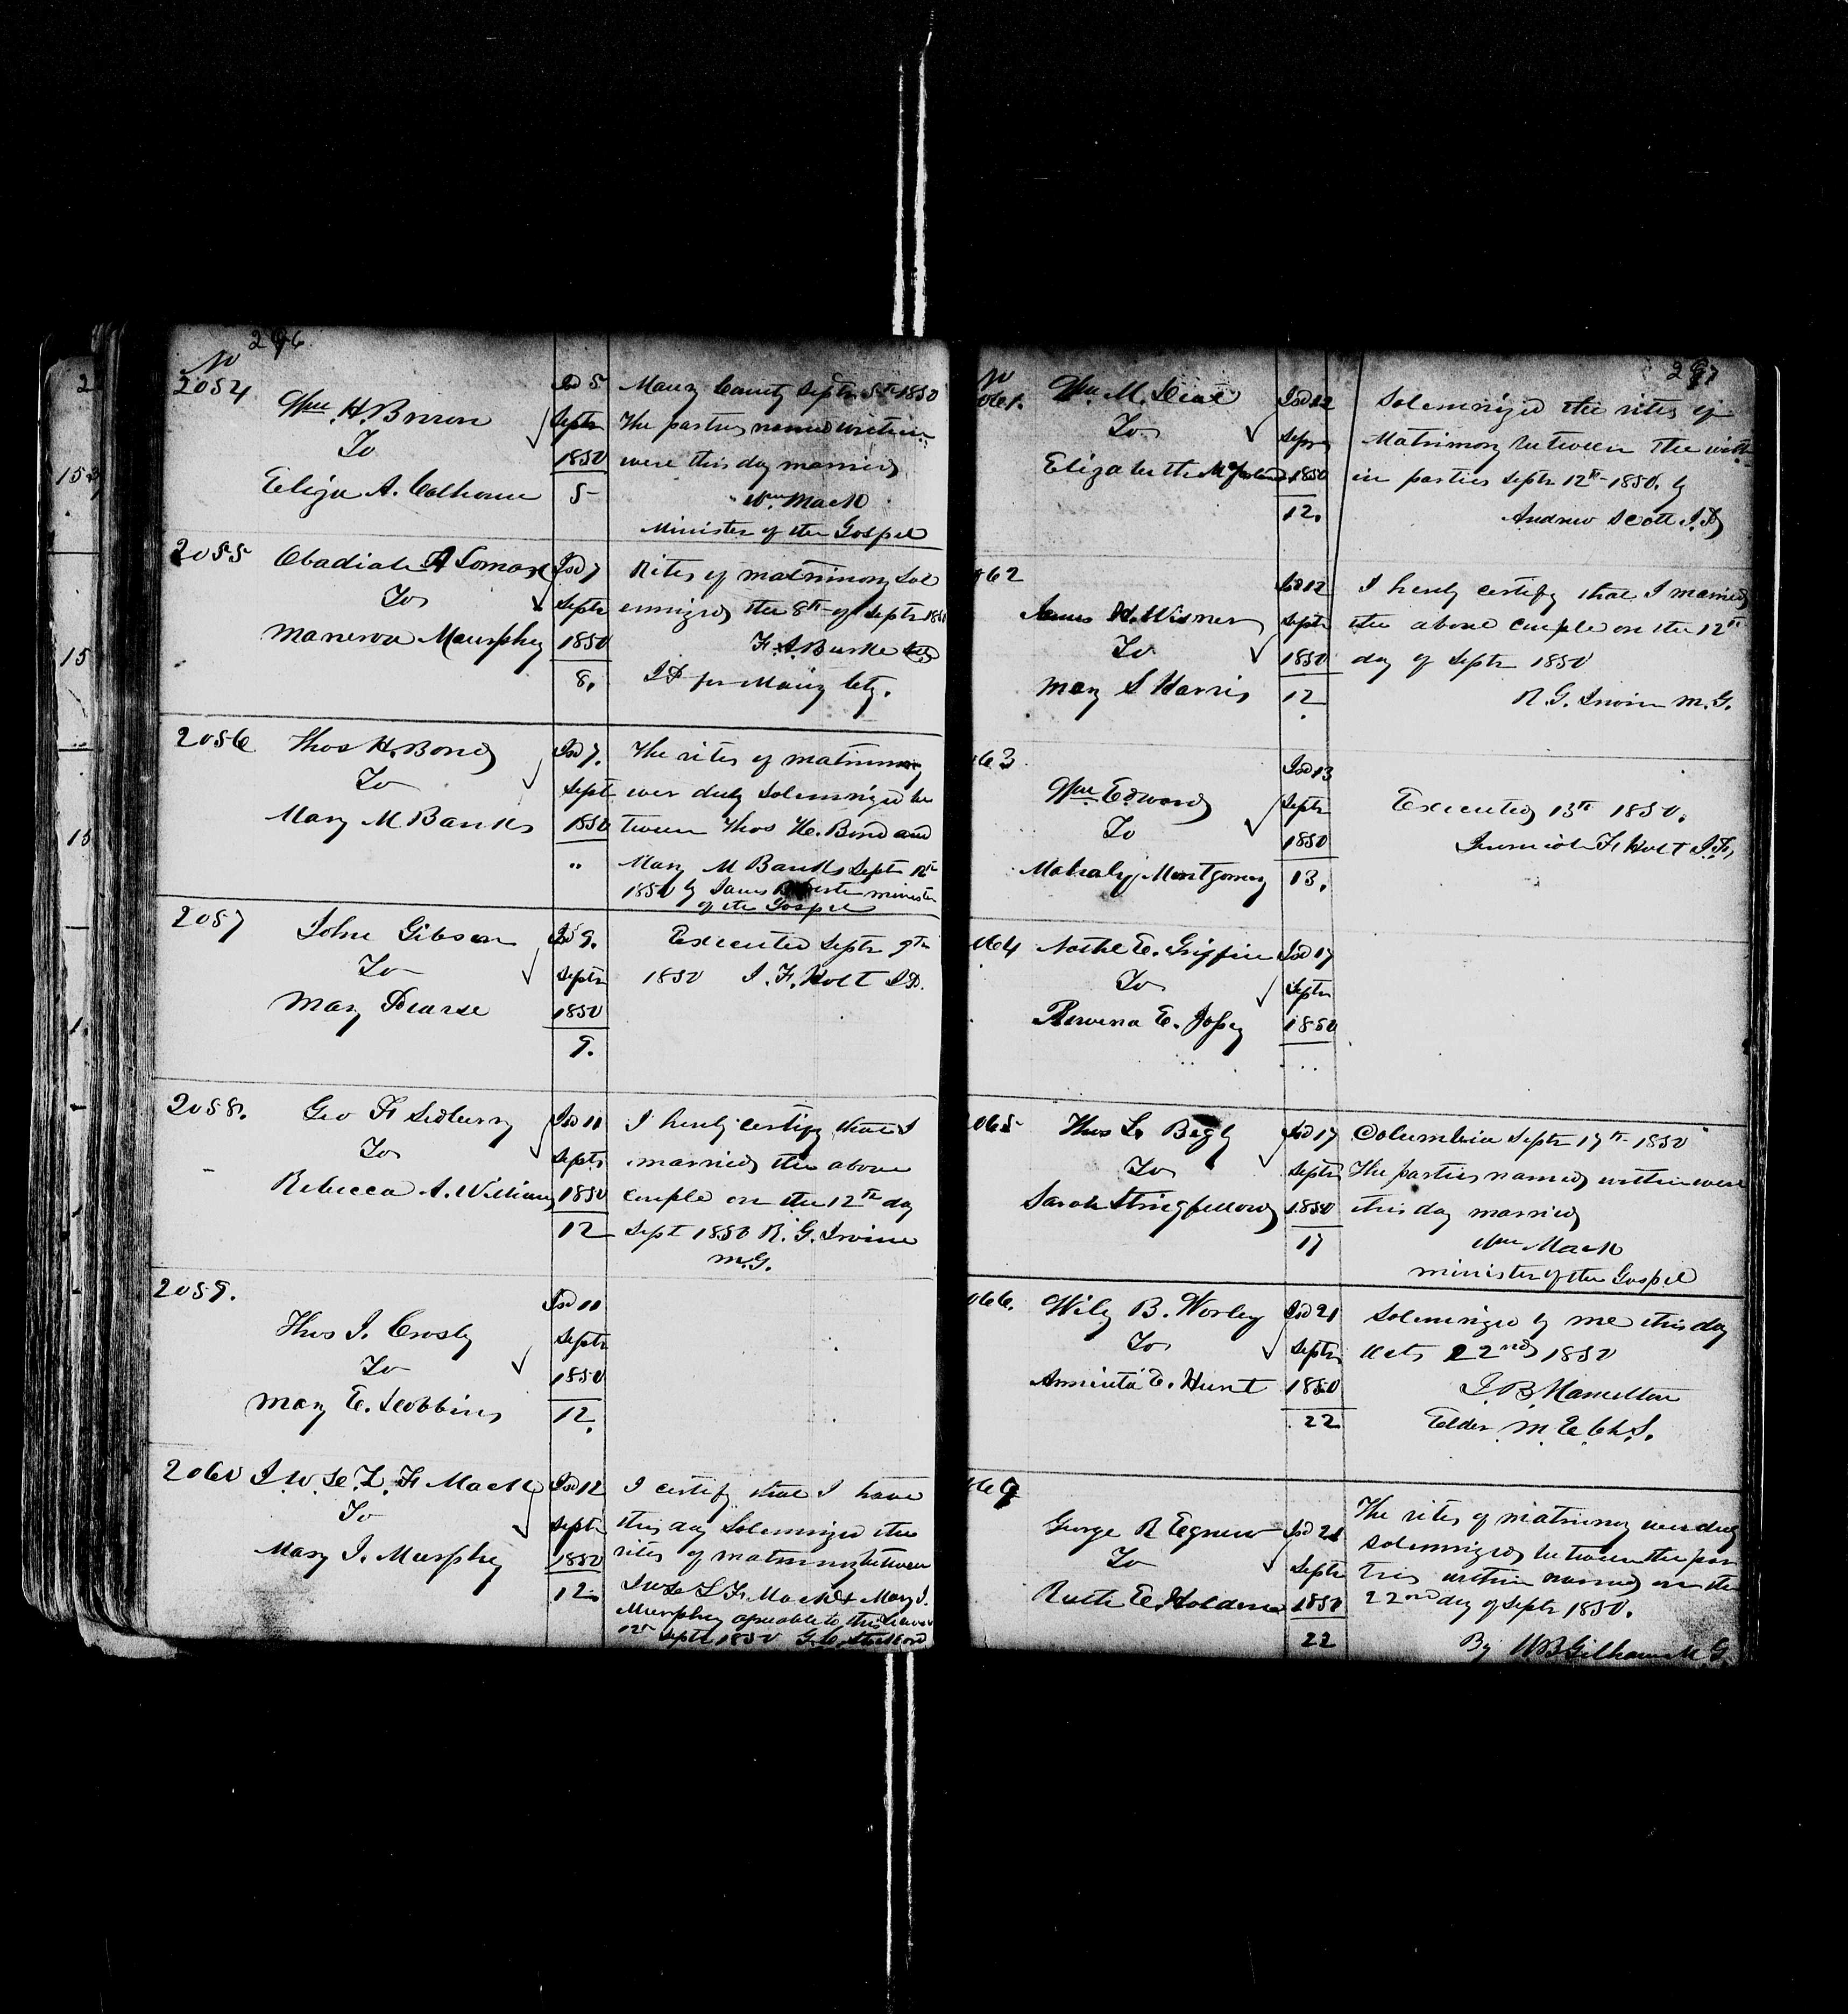 296
No
2054
Wm. H. Brown
To
Eliza A. Calhoun
Isd 5
Septr
1850
5
Maury County Septr 5th 1850
The parties named within
were this day married
Wm. Mack
Minister of the Gospel
2055
Obadiah A Lomax
To
Manerva Maurphy
Isd 7
Septr
1850
8.
Rites of matrimony Sol
emnized the 8th of Septr
F. A. Burke
J P for Maury Cty.
2056
Thos H. Bond
To
Mary M Banks
Isd 7.
Sept
1850
"
The rites of matrimony
wer duly Solemnized be
tween Thos H. Bond and
Mary M Banks Sept 12th
1850 by James minister
of the Gospel
2057
John Gibson
To
Mary Pearse
Isd 9.
Septr
1850
9.
Executed Septr 9th
1850 J. F. Holt J P.
2058.
Geo F Sedberry
To
Rebecca A. Williams
Isd 11
Septr
1850
12
I hereby certify that I
married the above
couple on the 12th day
Sept 1850 R. G. Irvine
M.G.
2059.
Thos J. Crosby
To
Mary E. Dobbins
Isd 11
Septr
1850
12.
2060
J. W. De. L. F. Mack
To
Mary J. Murphy
Isd 12
Septr
1850
12
I certify that I have
this day Solemnized the
rites of matrimony between
J W De L F Mack & Mary J.
Murphy agreeable to this
12th Septr 1850 G. C. Stockard
297
No
061.
Wm. M. Deal
To
Elizabeth
Isd 12
Septr
1850
12.
Solemnized the rites of
Matrimony between the with
in parties Septr 12th 1850. by
Andrew Scott J. P.
062
James H. Wisner
To
Mary S Harris
Isd 12
Septr
1850
12
I hereby certify that I married
the above couple on the 12th
day of Septr 1850
R. G. Irvin M. G.
063
Wm. Edwards
To
Mahaly Montgomery
Isd 13
Septr
1850
13.
Executed 13th 1850.
Jeremiah F. Holt J. P.
064
Nathl E. Griffin
To
Rewena E. Josey
Isd 17
Septr
1850
065
Thos L. Bagly
To
Sarah Stringfellow
Isd 17
Septr
1850
17
Columbia Septr 17th 1850
The parties named within were
this day married
Wm Mack
minister of the Gospel
066.
Wily B. Worley
To
Aminta E. Hunt
Isd 21
Septr
1850
22
Solemnized by me this day
22nd 1850
J. B. Hamilton
Elder M. E. Ch. S.
067
George R Egnew
To
Ruth E. Holden
Isd 21
Septr
1850
22
The rites of matrimony wer duly
Solemnized between the par
ties within named on the
22nd day of Septr 1850.
By W B Gilham M G